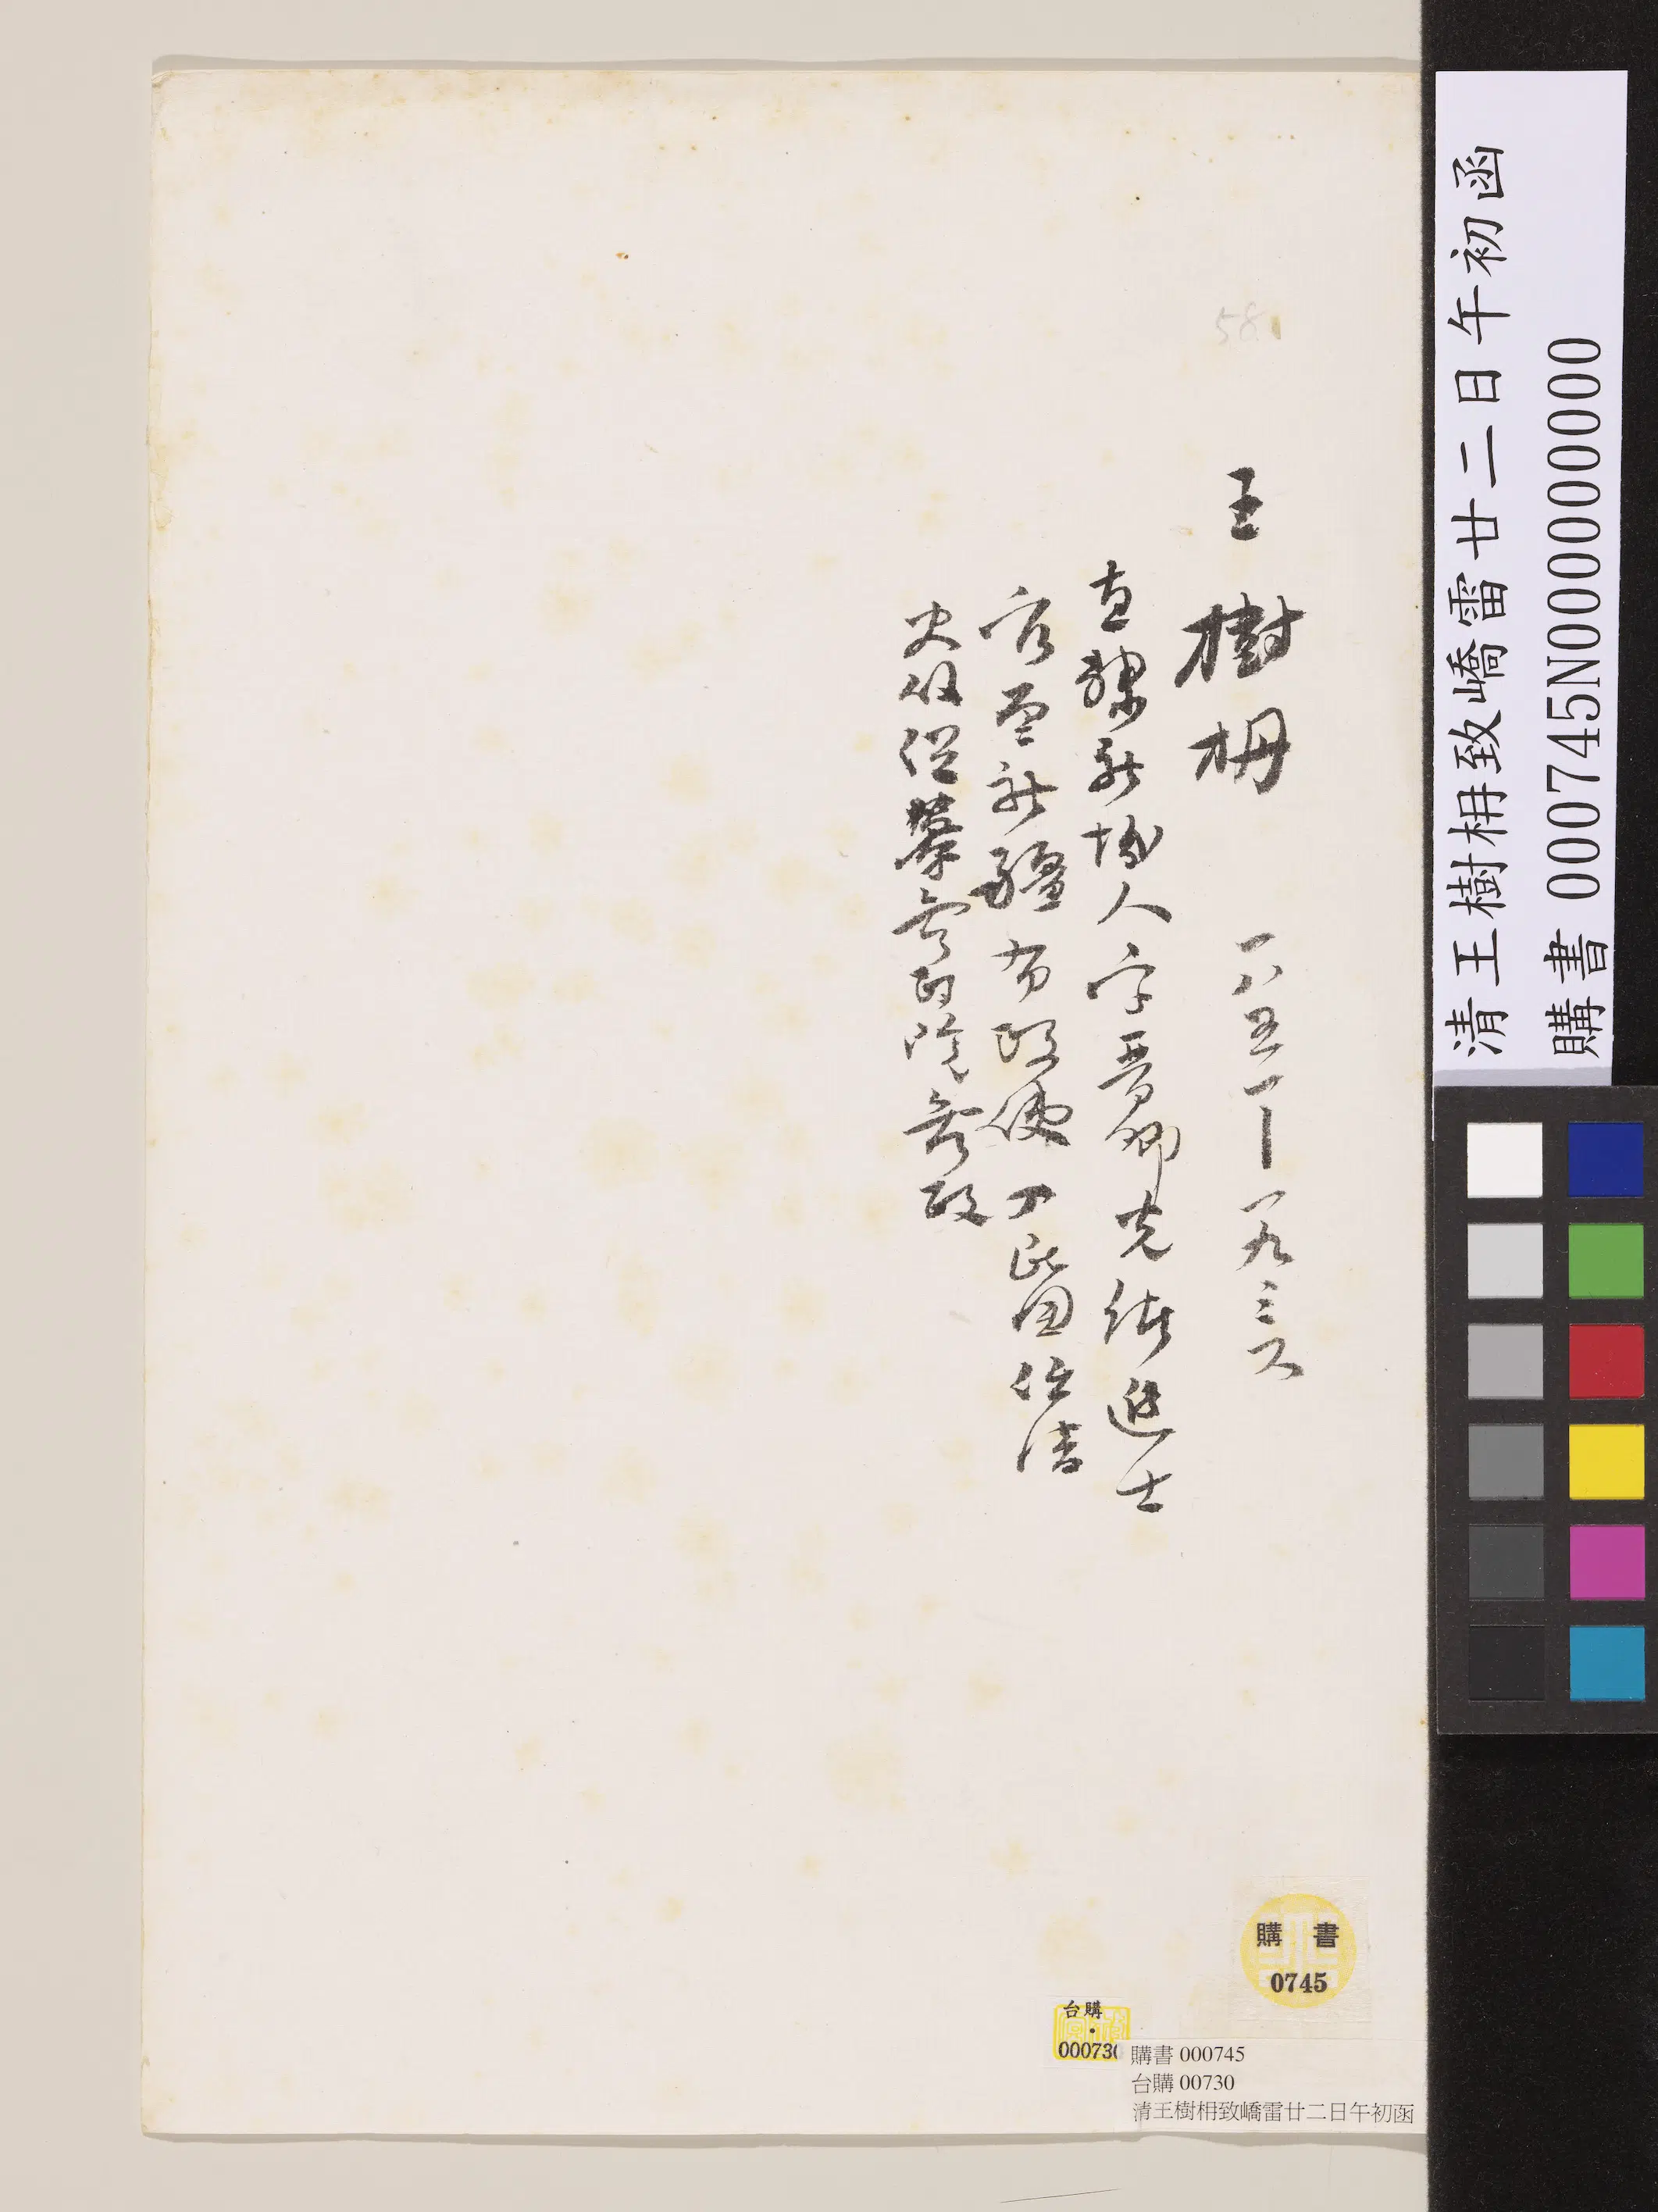 58
王樹枏 一八五一—一九三六
直隸新城人字晋卿光緒進士
官至新疆布政使入民国任清
史館總纂參政院參政
清王樹枏致嶠雷廿二日午初函
購書 000745N000000000
購書
0745
台購
00073
購書 000745
台購 00730
清王樹枏致嶠雷廿二日午初函